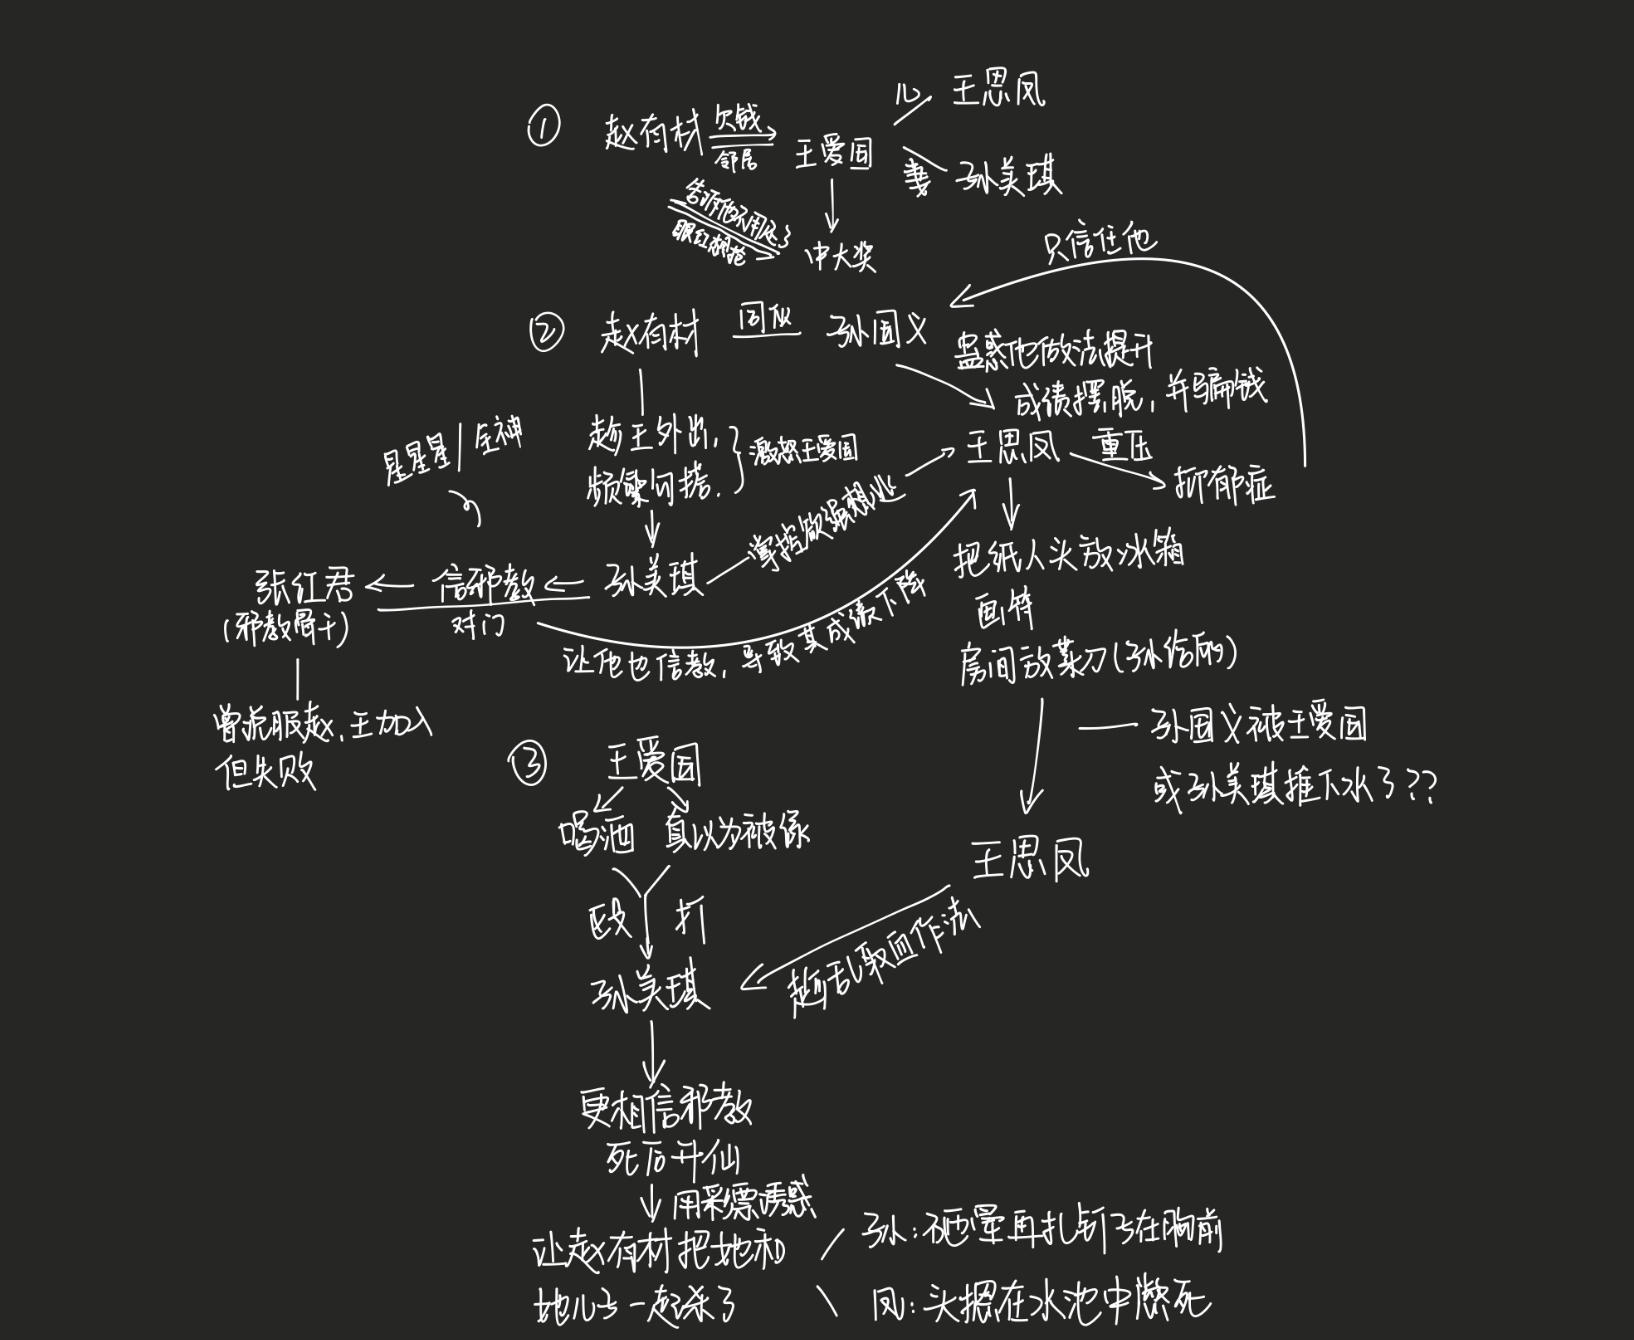 ① 赵有材 欠钱 王爱国 儿 王思凤
邻居
妻 孙美琪
告诉他不用还了
眼红想抢
中大奖
只信任他
② 赵有材 同伙 孙国义
蛊惑他做法提升
成绩摆脱,并骗钱
趁王外出,
频繁勾搭.
激怒王爱国
王思凤 重压
抑郁症
星星星/全神
掌控欲强想逃
张红君 信邪教 孙美琪
(邪教骨干)
对门
让他也信教,导致其成绩下降
把纸人头放冰箱
画符
房间放菜刀(孙给的)
曾说服赵、王加入
但失败
孙国义被王爱国
或孙美琪推下水了??
③ 王爱国
喝酒 真以为被绿
殴打
王思凤
趁乱取血作法
孙美琪
更相信邪教
死后升仙
用彩票诱惑
让赵有材把她和
她儿子一起杀了
孙:砸晕再扎钉子在胸前
凤:头摁在水池中憋死